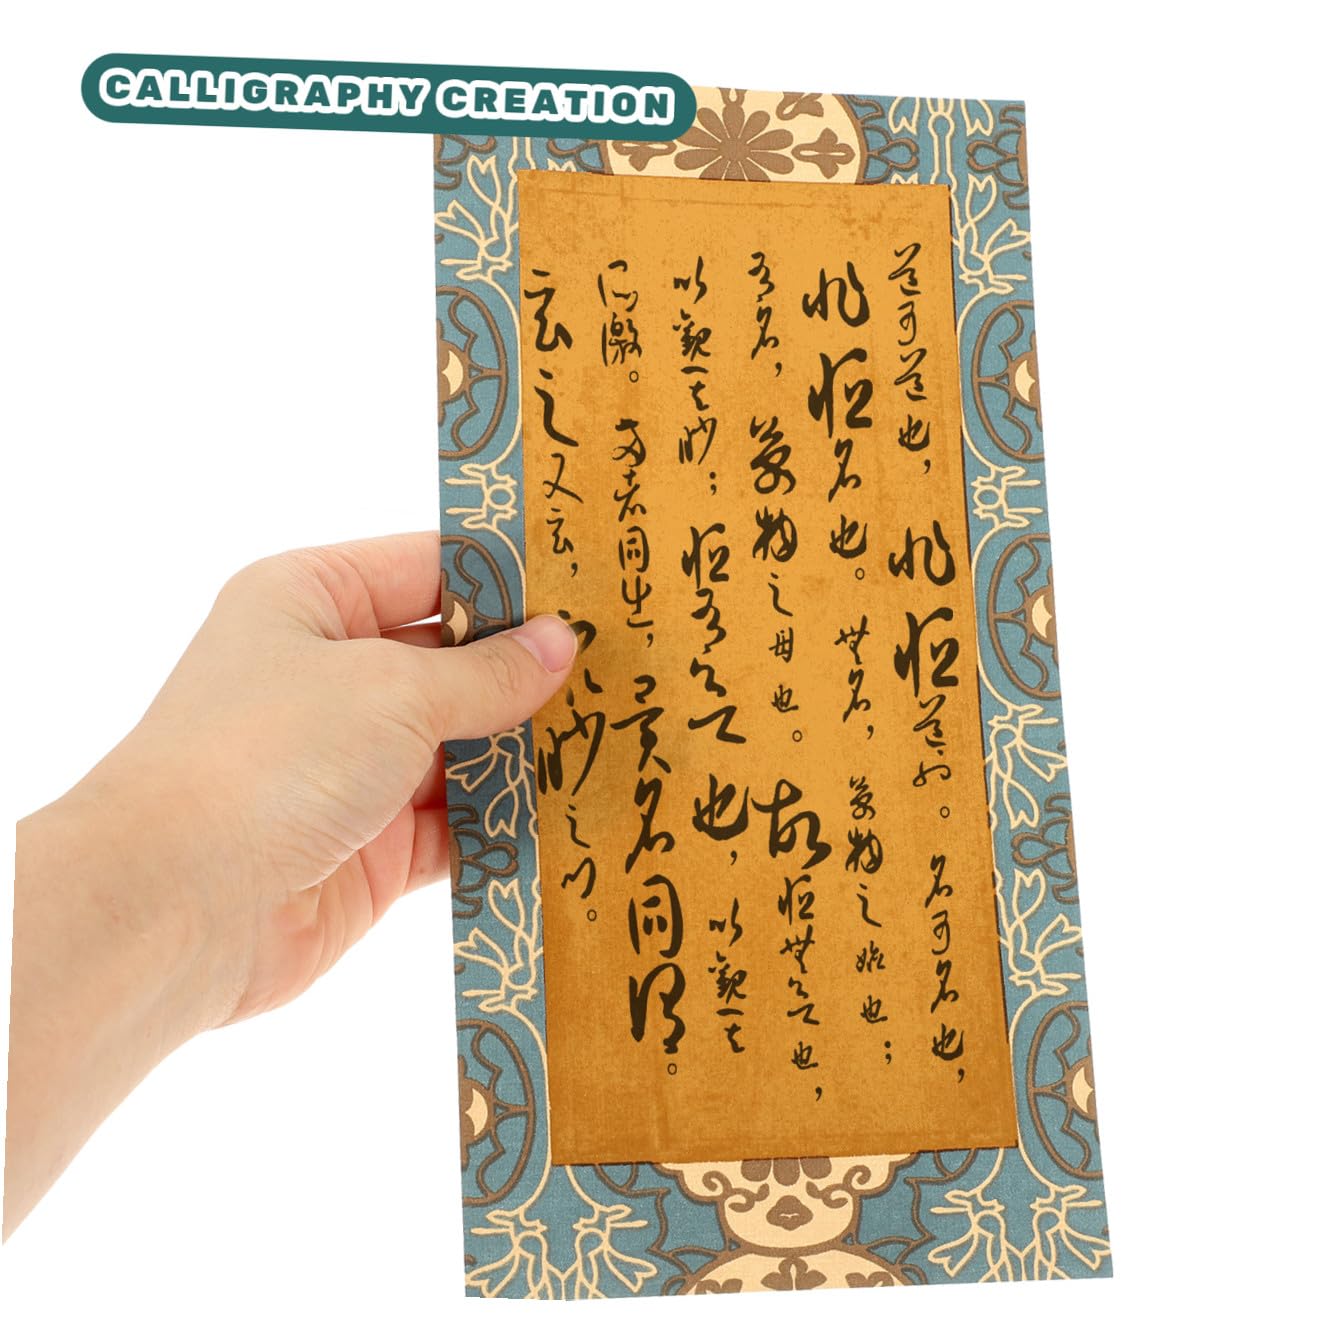 CALLIGRAPHY CREATION
道可道也，非恒道也。名可名也，
非恒名也。無名，萬物之始也；
有名，萬物之母也。故恒無欲也，
以觀其妙；恒有欲也，以觀其
所徼。兩者同出，異名同謂。
玄之又玄，眾妙之門。